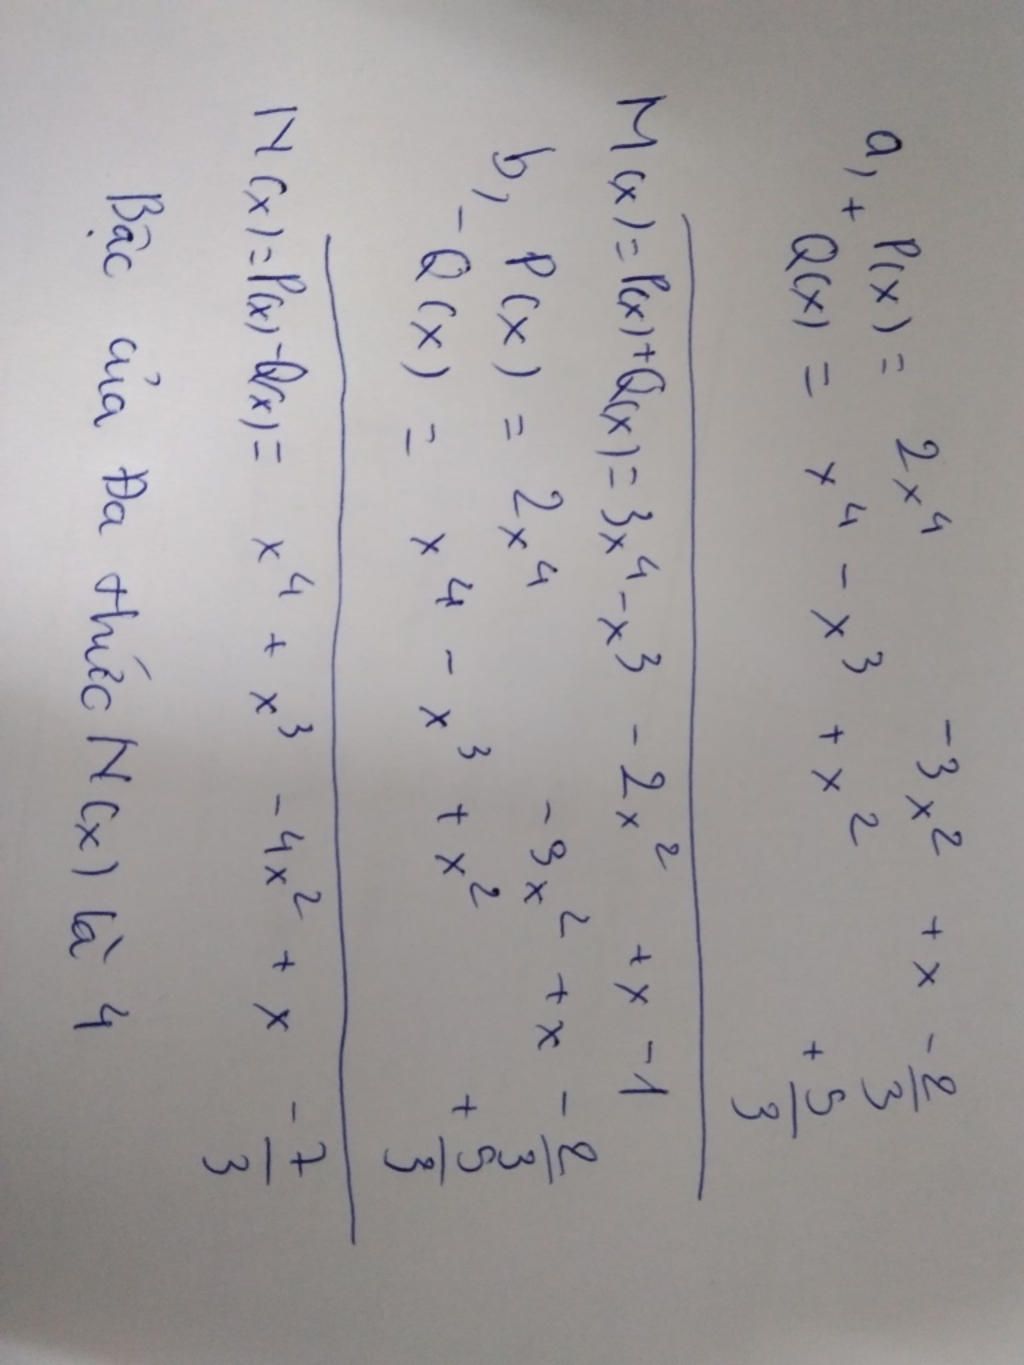 a, + P(x) = 2x⁴ -3x² + x - 2/3
Q(x) = x⁴ - x³ + x² + 5/3
M(x) = P(x) + Q(x) = 3x⁴ - x³ - 2x² + x - 1
b, P(x) = 2x⁴ - 3x² + x - 2/3
- Q(x) = x⁴ - x³ + x² + 5/3
N(x) = P(x) - Q(x) = x⁴ + x³ - 4x² + x - 7/3
Bậc của Đa thức N(x) là 4